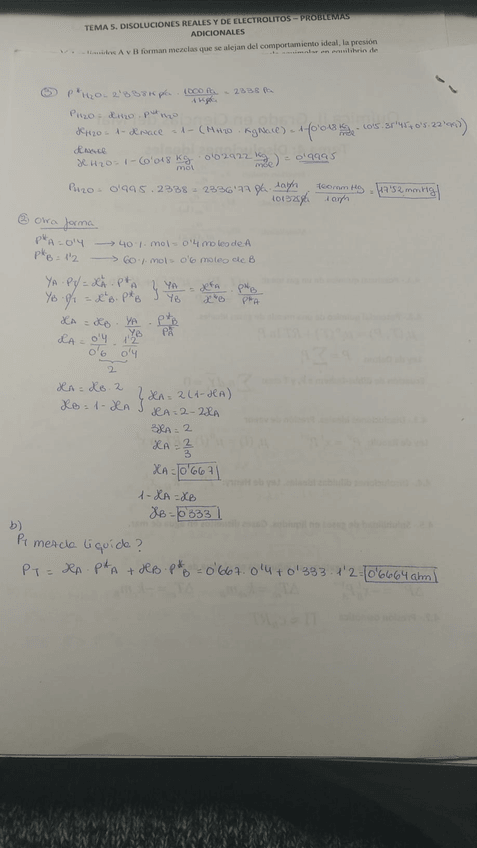 TEMA 5. DISOLUCIONES REALES Y DE ELECTROLITOS – PROBLEMAS
ADICIONALES
líquidos A y B forman mezclas que se alejan del comportamiento ideal, la presión
P*H2O = 2'338 KPa · 1000 Pa / 1 KPa = 2338 Pa
PH2O = xH2O · P*H2O
xH2O = 1 - xNaCl = 1 - (MH2O · KgNaCl) = 1 - (0'018 Kg/mol
xNaCl
xH2O = 1 - (0'018 Kg/mol · 0'02922 Kg/mol) = 0'9995
PH2O = 0'995 · 2338 = 2336'77 Pa · 1 atm / 101325 Pa · 760 mmHg / 1 atm = 17'52 mmHg
② Otra forma
P*A = 0'4 → 40% mol = 0'4 moles de A
P*B = 1'2 → 60% mol = 0'6 moles de B
YA · PT = xA · P*A } YA/YB = xA/xB · P*A
YB · PT = xB · P*B
xA = xB · YA/YB · P*B/P*A
xA = 0'4/0'6 · 1'2/0'4
2
xA = xB · 2 } xA = 2(1 - xA)
xB = 1 - xA
xA = 2 - 2xA
3xA = 2
xA = 2/3
xA = 0'667
1 - xA = xB
xB = 0'333
b)
PT mezcla liquida?
PT = xA · P*A + xB · P*B = 0'667 · 0'4 + 0'333 · 1'2 = 0'6664 atm